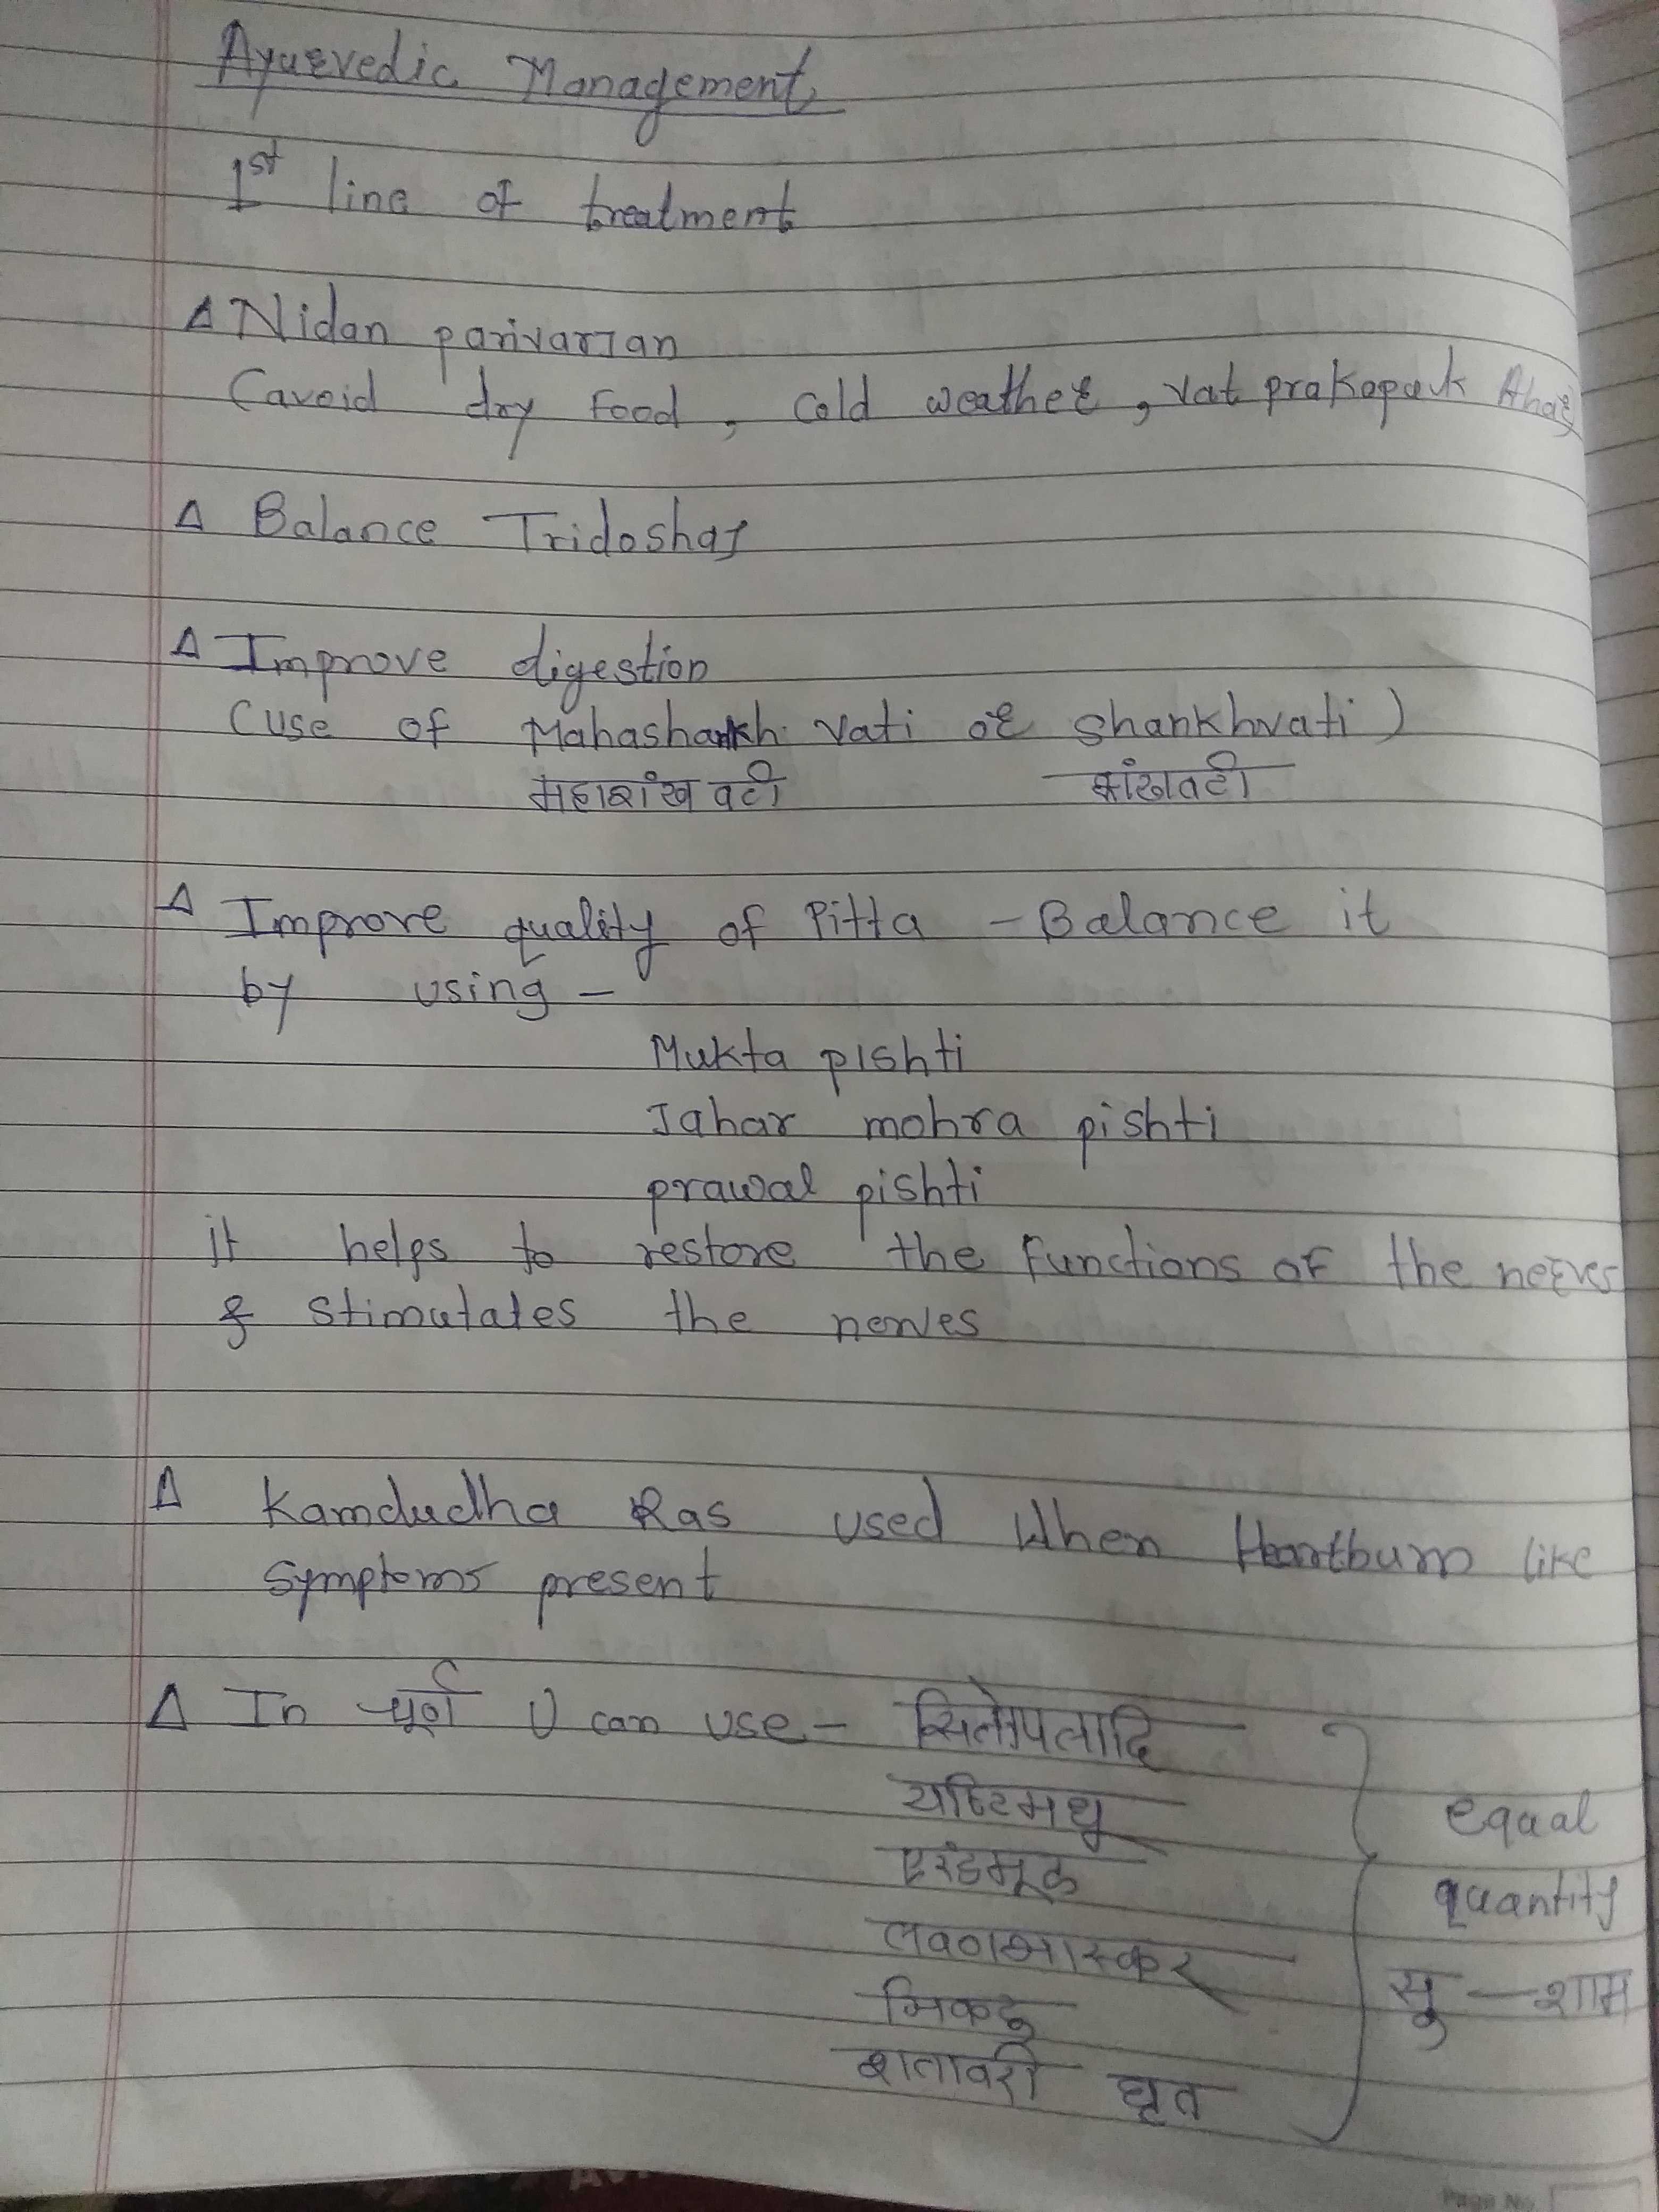 Ayurvedic Management
1st line of treatment
Δ Nidan parivarjan
(avoid dry food, cold weather, vat prakopak Ahar
Δ Balance Tridoshas
Δ Improve digestion
(use of Mahashankh vati or shankhvati)
महाशंख वटी शंखवटी
Δ Improve quality of Pitta - Balance it
by using -
Mukta pishti
Jahar mohra pishti
prawal pishti
it helps to restore the functions of the nerves
& stimulates the nerves
Δ Kamdudha Ras used When Heartburn like
symptoms present
Δ In चूर्ण U can use - सितोपलादि
यष्टिमधु
एरंडमूळ
लवणभास्कर
त्रिकटु
शतावरी घृत
equal
quantity
सु - शाम
Page No.